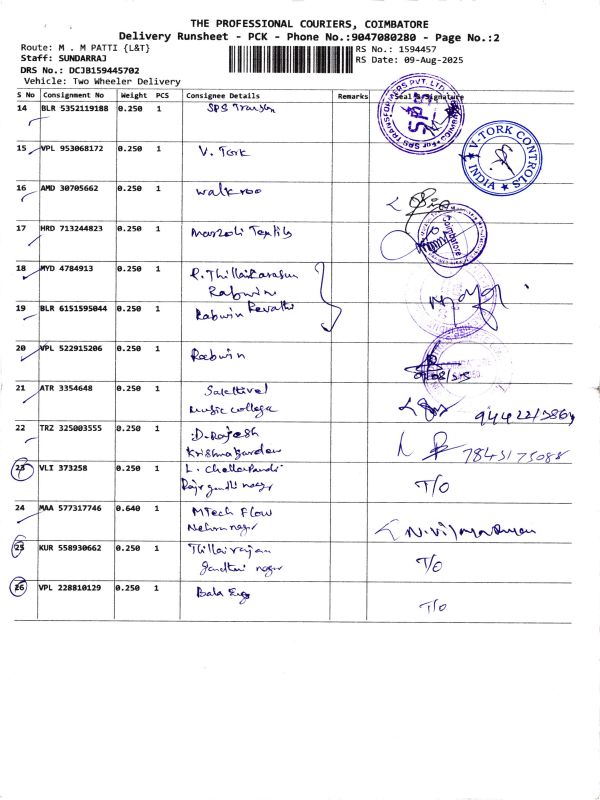 THE PROFESSIONAL COURIERS, COIMBATORE
Delivery Runsheet - PCK - Phone No.:9047080280 - Page No.:2
Route: M . M PATTI {L&T}
Staff: SUNDARRAJ
DRS No.: DCJB159445702
Vehicle: Two Wheeler Delivery
RS No.: 1594457
RS Date: 09-Aug-2025
S No Consignment No Weight PCS Consignee Details Remarks Seal & Signature
14 BLR 5352119188 0.250 1 SPS
15 VPL 953068172 0.250 1 V. Tork
V-TORK CONTROLS
INDIA
16 AMD 30705662 0.250 1 Walkroo
17 HRD 713244823 0.250 1
Coimbatore
18 MYD 4784913 0.250 1
Rabwin
19 BLR 6151595044 0.250 1 Rabwin Revathi
20 VPL 522915206 0.250 1 Rabwin
21 ATR 3354648 0.250 1 Sakthivel
music college
22 TRZ 325003555 0.250 1 D. Rajesh
Krishna Garden
7845175088
23 VLI 373258 0.250 1 L. Chellapandi T/O
Rajiv gandhi nagar
24 MAA 577317746 0.640 1 MTech Flow
Nehru nagar
25 KUR 558930662 0.250 1 Thillairajan T/O
gandhi nagar
26 VPL 228810129 0.250 1 Bala Eng T/O